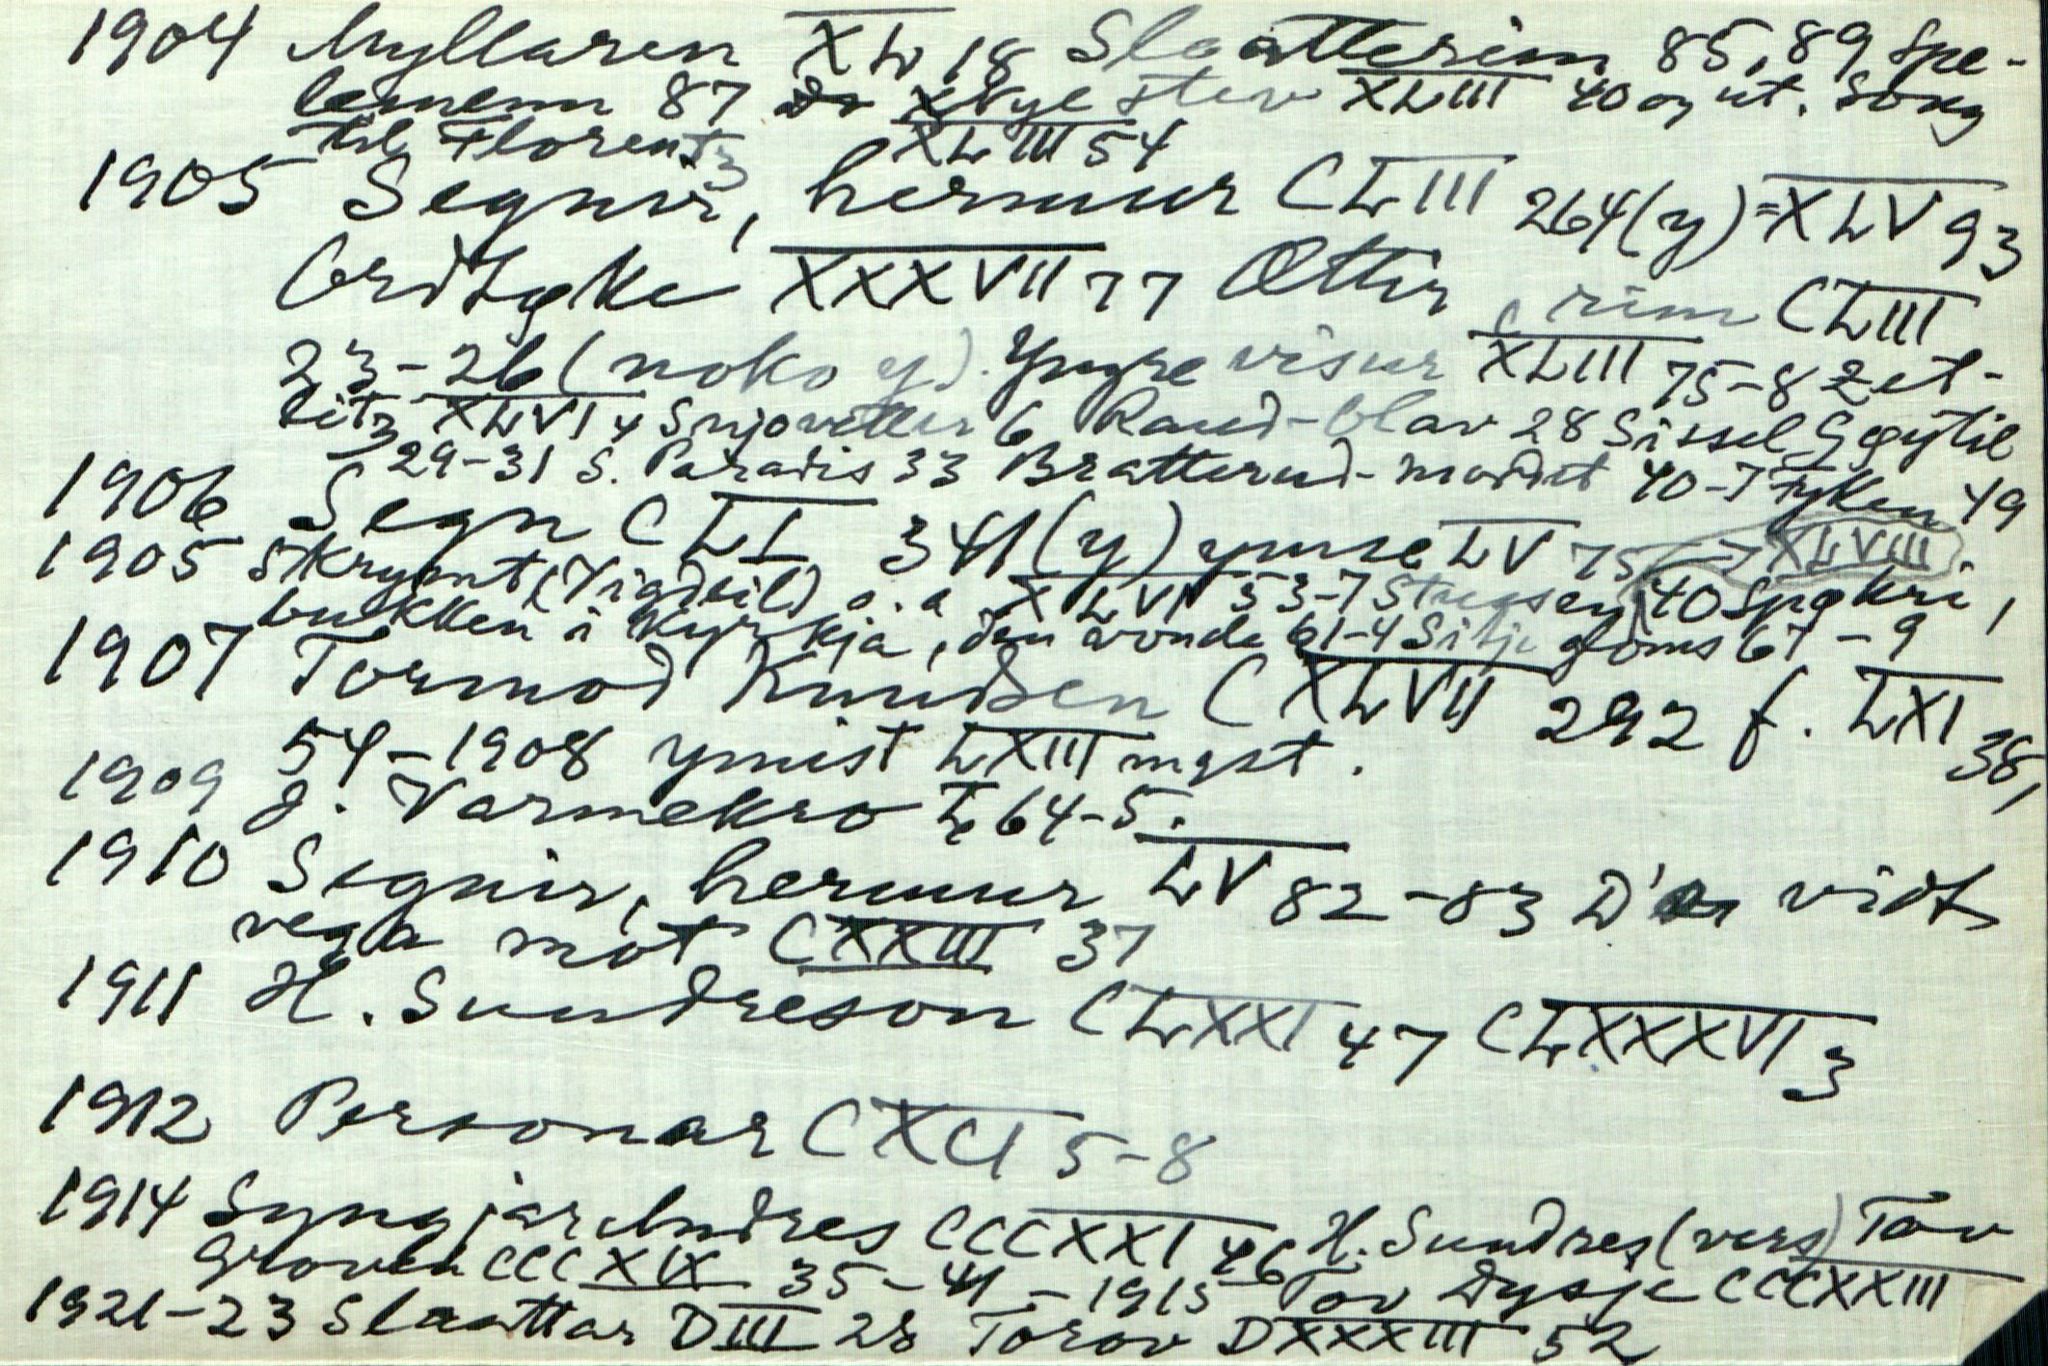 1904 Myllaren XL 18 Slaatterim 85, 89 Spe-
lemenn 87 Nye stev XLIII 40 og ut. Song
til Florentz XLIII 54
1905 Segnir, hermur CLIII 264 (y) = XLV 93
Ordtøke XXXVII 77 Ættir, rim CLIII
23-26 (noko y). Yngre visur XLIII 75-8 Zet-
litz XLVI 4 Snjovetter 6 Raud-Olav 28 Sissel Høgetil
29-31 S. Paradis 33 Bratterud-mordet 40-7 Fyken 49
1906 Segn CLI 341 (y) ymse LV 75-7 XLVIII
1905 Skrymt (Vigdeild) o.a XLVI 53-7 40 Spøkri,
bukken i kyrkja, den vonde 61-4 Silje Goms 67-9
1907 Tormod Knudsen CXLVII 292 f. LXI 38,
54-1908 ymist LXIII mgst.
1909 J. Varmekro L 64-5.
1910 Segnir, hermur LV 82-83 D'er vidt
vega mot CXXIII 37
1911 H. Sundreson CLXXI 47 CLXXXVI 3
1912 Personar CXCI 5-8
1914 Syngjar Andres CCCXXI 46 H. Sundres (vers) Tov
Groven CCCXIX 35-41 - 1915 Tov Dysje CCCXXIII
1921-23 Slaattar DIII 28 Torov DXXXIII 52